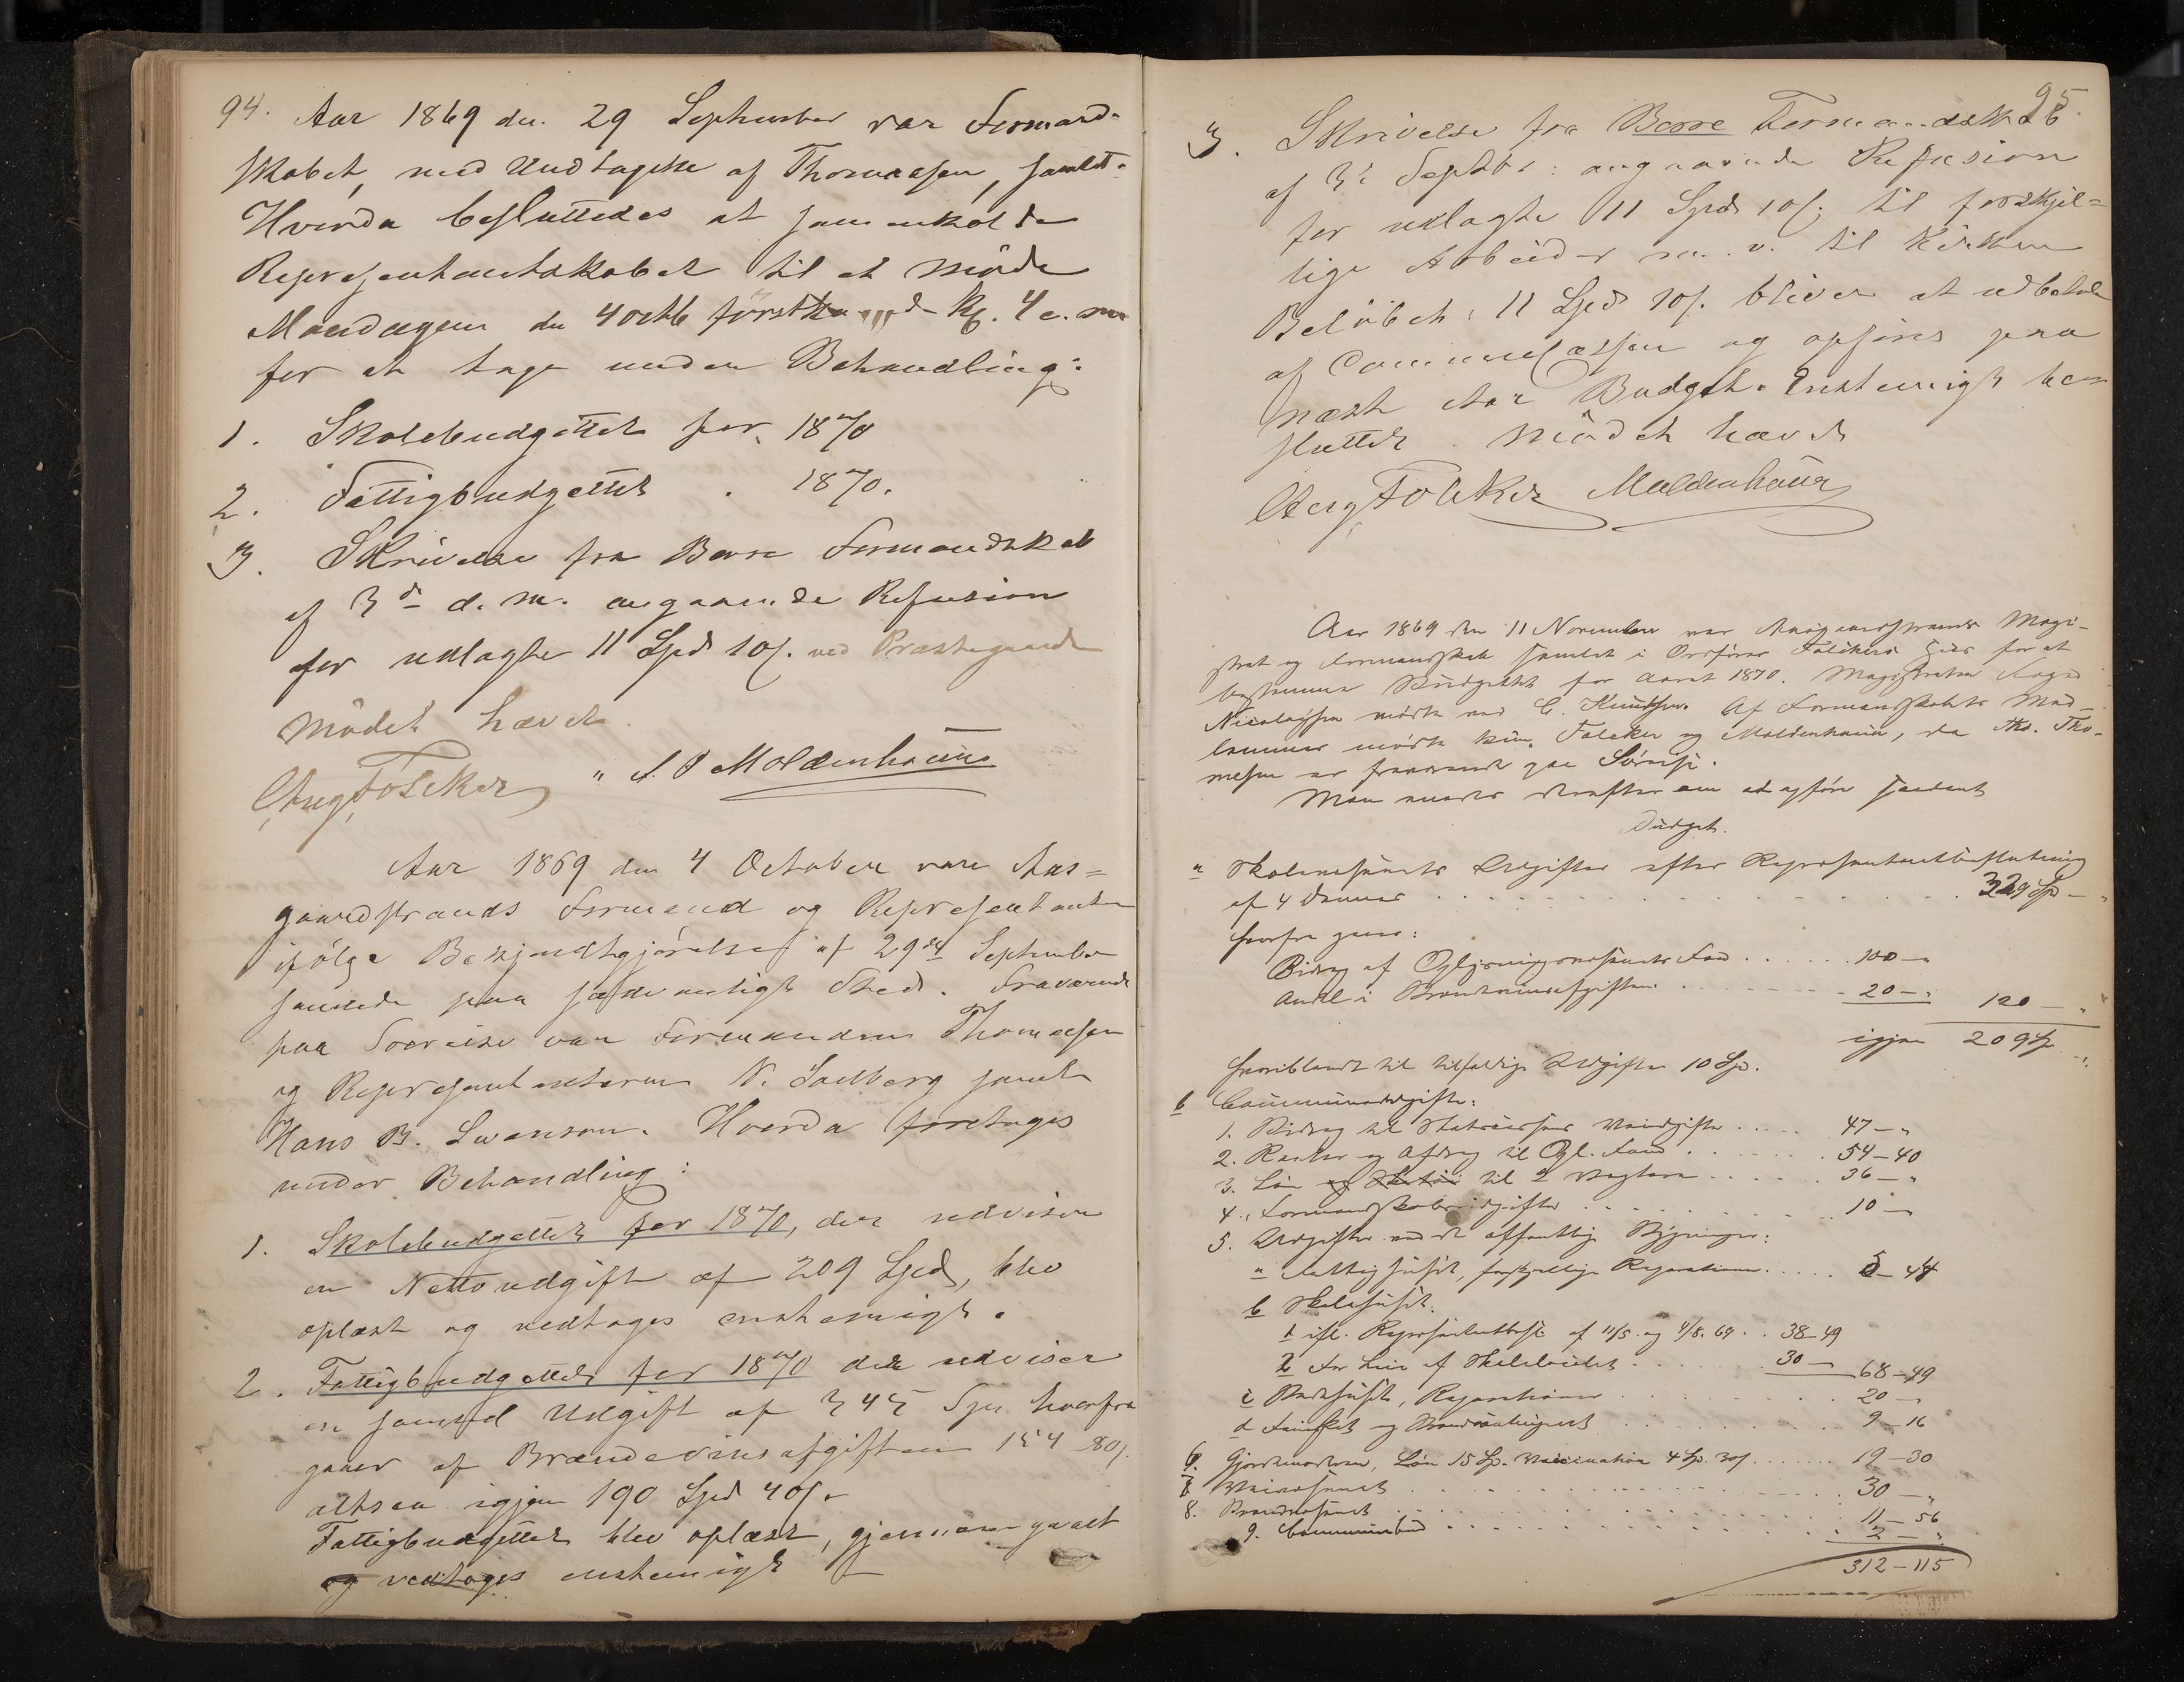 94. Aar 1869 den 29 September var Formand-
skabet, med Undtagelse af Thomassen, samlet.
Hvorda besluttedes at sammenkalde
Representantskabet til et Møde
Mandagen den 4 octb førstkommende Kl. 4 e. m.
for at tage under Behandling:
1. Skolebudgettet for 1870
2. Fattigbudgettet . 1870.
3. Skrivelse fra Borre Formandskab
af 3d d. m. angaaende Refusion
for udlagte 11 Spd 10 s. ved Præstegaarden
Mødet hævet.
Aug. Fölcker " A. O Moldenhauer
Aar 1869 den 4 October vare Aas=
gaardstrands Formænd og Representanter
ifølge Bekjendtgjørelse af 29de September
samlede paa sædvanligt Sted. Fraværende
paa Soereise var Formanden Thomassen
og Representanterne N. Solberg samt
Hans B. Svenson. Hvorda foretages
under Behandling:
1. Skolebudgettet for 1870, der udviser
en Nettoudgift af 209 Spd, blev
oplæst og vedtages enstemigt.
2. Fattigbudgettet for 1870 der udviser
en samlet Udgift af 345 Spd hvorfra
gaaer af Brændevinsafgiften 154 80 s.
altsaa igjen 190 Spd 40 s.
Fattigbudgettet blev oplæst, gjennemgaaet
og vedtages enstemigt
95.
3. Skrivelse fra Borre Formandskab
af 3d Septbr: angaaende Refusion
for udlagte 11 Spd 10 s; til forskjel=
lige Arbeider m. v. til Kirken
Beløbet: 11 Spd 10 s. bliver at udbetale
af Communecassen og opføres paa
næste Aar Budget. Enstemigt be-
sluttet. Mødet hævet
Aug Fölcker Moldenhauer
Aar 1869 den 11 November var Aasgaardstrands Magi-
strat og Formandskab samlet i Ordfører Fölckers Huus for at
bestemme Budgettet for Aaret 1870. Magistraten Foged
Nicolaysen mødte ved C. Knudsen. Af Formandskabets Med-
lemmer mødte kun Fölcker og Moldenhauer, da Ths. Tho-
mesen er fraværende paa Søreise.
Man enedes derefter om at opføre saadant
Budget.
a Skolevæsenets Udgifter efter Repræsentantbeslutning
af 4 dennes . . . 329 Sp - "
hvorfra gaaer:
Bidrag af Oplysningsvæsenets Fond . . . 100 - "
Andel i Brændeviinsafgiften . . . 20 - " 120 - "
igjen 209 Sp "
hvoriblandt til tilfældige Udgifter 10 Sp.
b Communeudgifter:
1. Bidrag til Statscassens . . . 47 - "
2. Renter og Afdrag til Opl. Fond . . . 54 - 40
3. Løn til 2 Vægtere . . . 36 - "
4. Formandskabsudgifter . . . 10 -
5. Udgifter ved de offentlige Bygninger:
a Fattighuset, forskjellige Reparationer . . . 44
b Skolehuset.
1 ifl. Repræsentantbesl. af 11/5 og 4/8. 69 . . 38 - 49
2 For Leie af Skolelocalet . . . 30 - 68 - 49
c Raadhuset, Reparationer . . . 20 -
d . . . 9 - 16
6. Gjordemoderen, Løn 15 Sp. Vaccination 4 Sp. 30 s . . . 19 - 30
7 Veivæsenet . . . 30 - "
8. Brandvæsenet . . . 11 - 56
9. Communebud . . . 2 - "
312 - 115